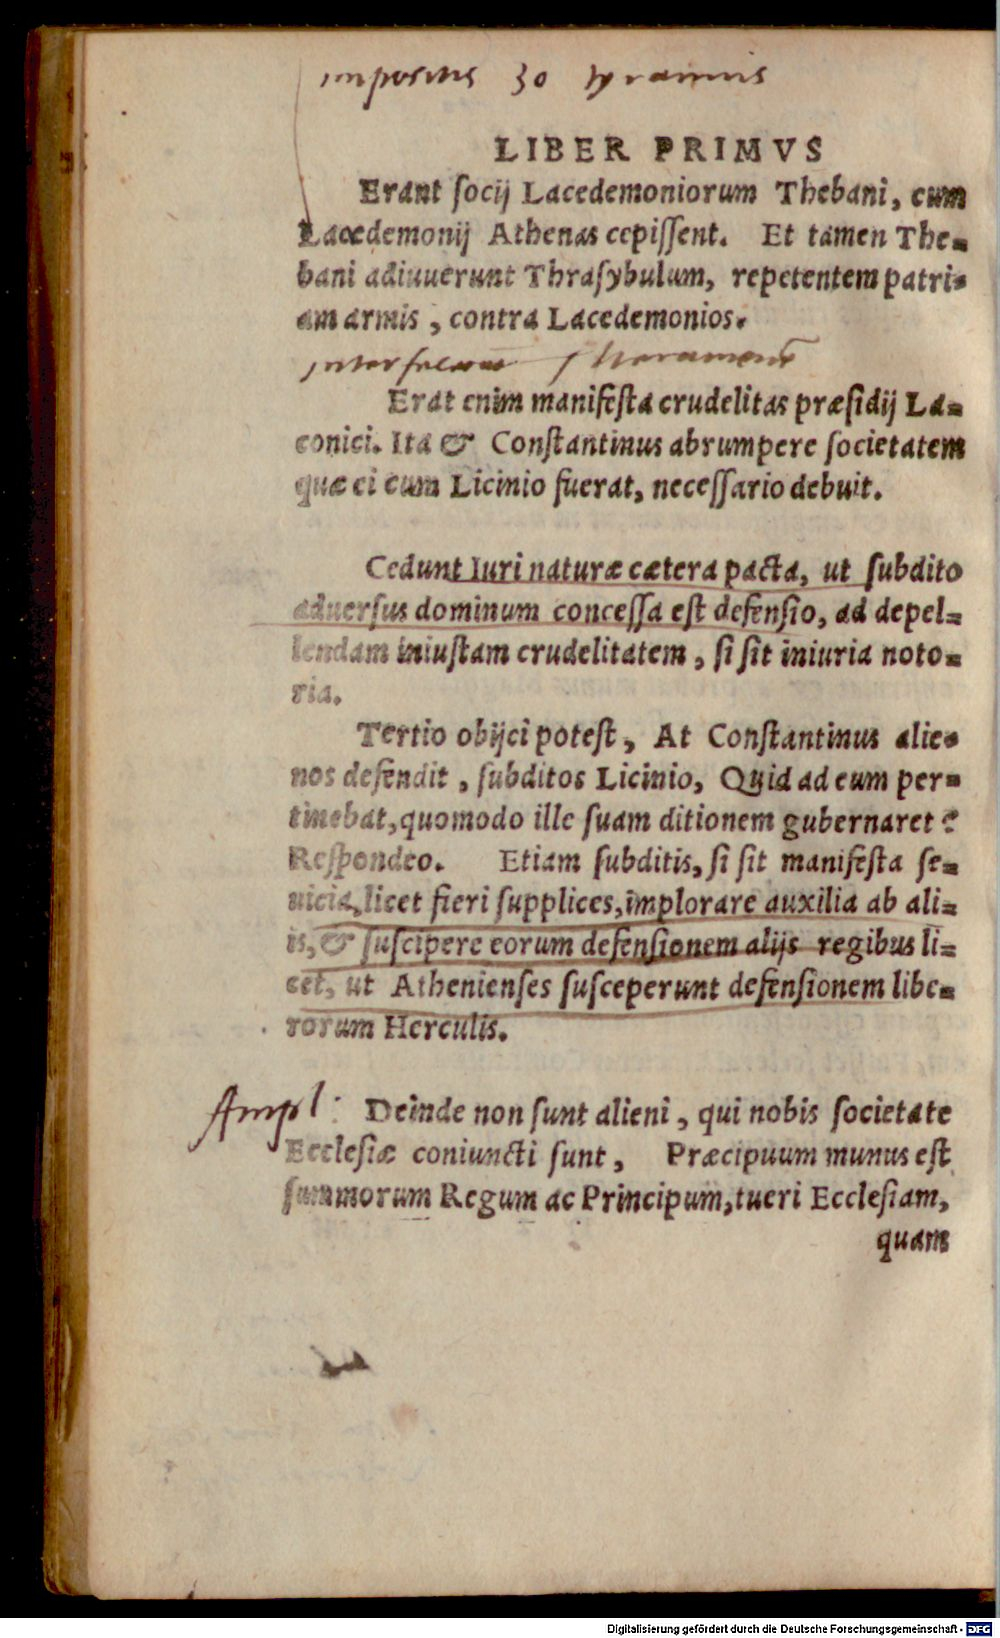 impositis 30 tyrannis
LIBER PRIMVS
Erant ſocij Lacedemoniorum Thebani, cum
Lacedemonij Athenas cepiſſent. Et tamen The-
bani adiuuerunt Thraſybulum, repetentem patri-
am armis, contra Lacedemonios.
Erat enim manifeſta crudelitas præſidij La-
conici. Ita & Conſtantinus abrumpere ſocietatem
quæ ei cum Licinio fuerat, neceſſario debuit.
Cedunt Iuri naturæ cætera pacta, ut ſubdito
aduerſus dominum conceſſa eſt defenſio, ad depel-
lendam iniuſtam crudelitatem, ſi ſit iniuria noto-
ria.
Tertio obijci poteſt, At Conſtantinus alie-
nos defendit, ſubditos Licinio, Quid ad eum per-
tinebat, quomodo ille ſuam ditionem gubernaret?
Reſpondeo. Etiam ſubditis, ſi ſit manifeſta ſe-
uicia, licet fieri ſupplices, implorare auxilia ab ali-
is, & ſuſcipere eorum defenſionem alijs regibus li-
cet, ut Athenienſes ſuſceperunt defenſionem libe-
rorum Herculis.
Ampl:
Deinde non ſunt alieni, qui nobis ſocietate
Eccleſiæ coniuncti ſunt, Præcipuum munus eſt
ſummorum Regum ac Principum, tueri Eccleſiam,
quam
Digitalisierung gefördert durch die Deutsche Forschungsgemeinschaft - DFG